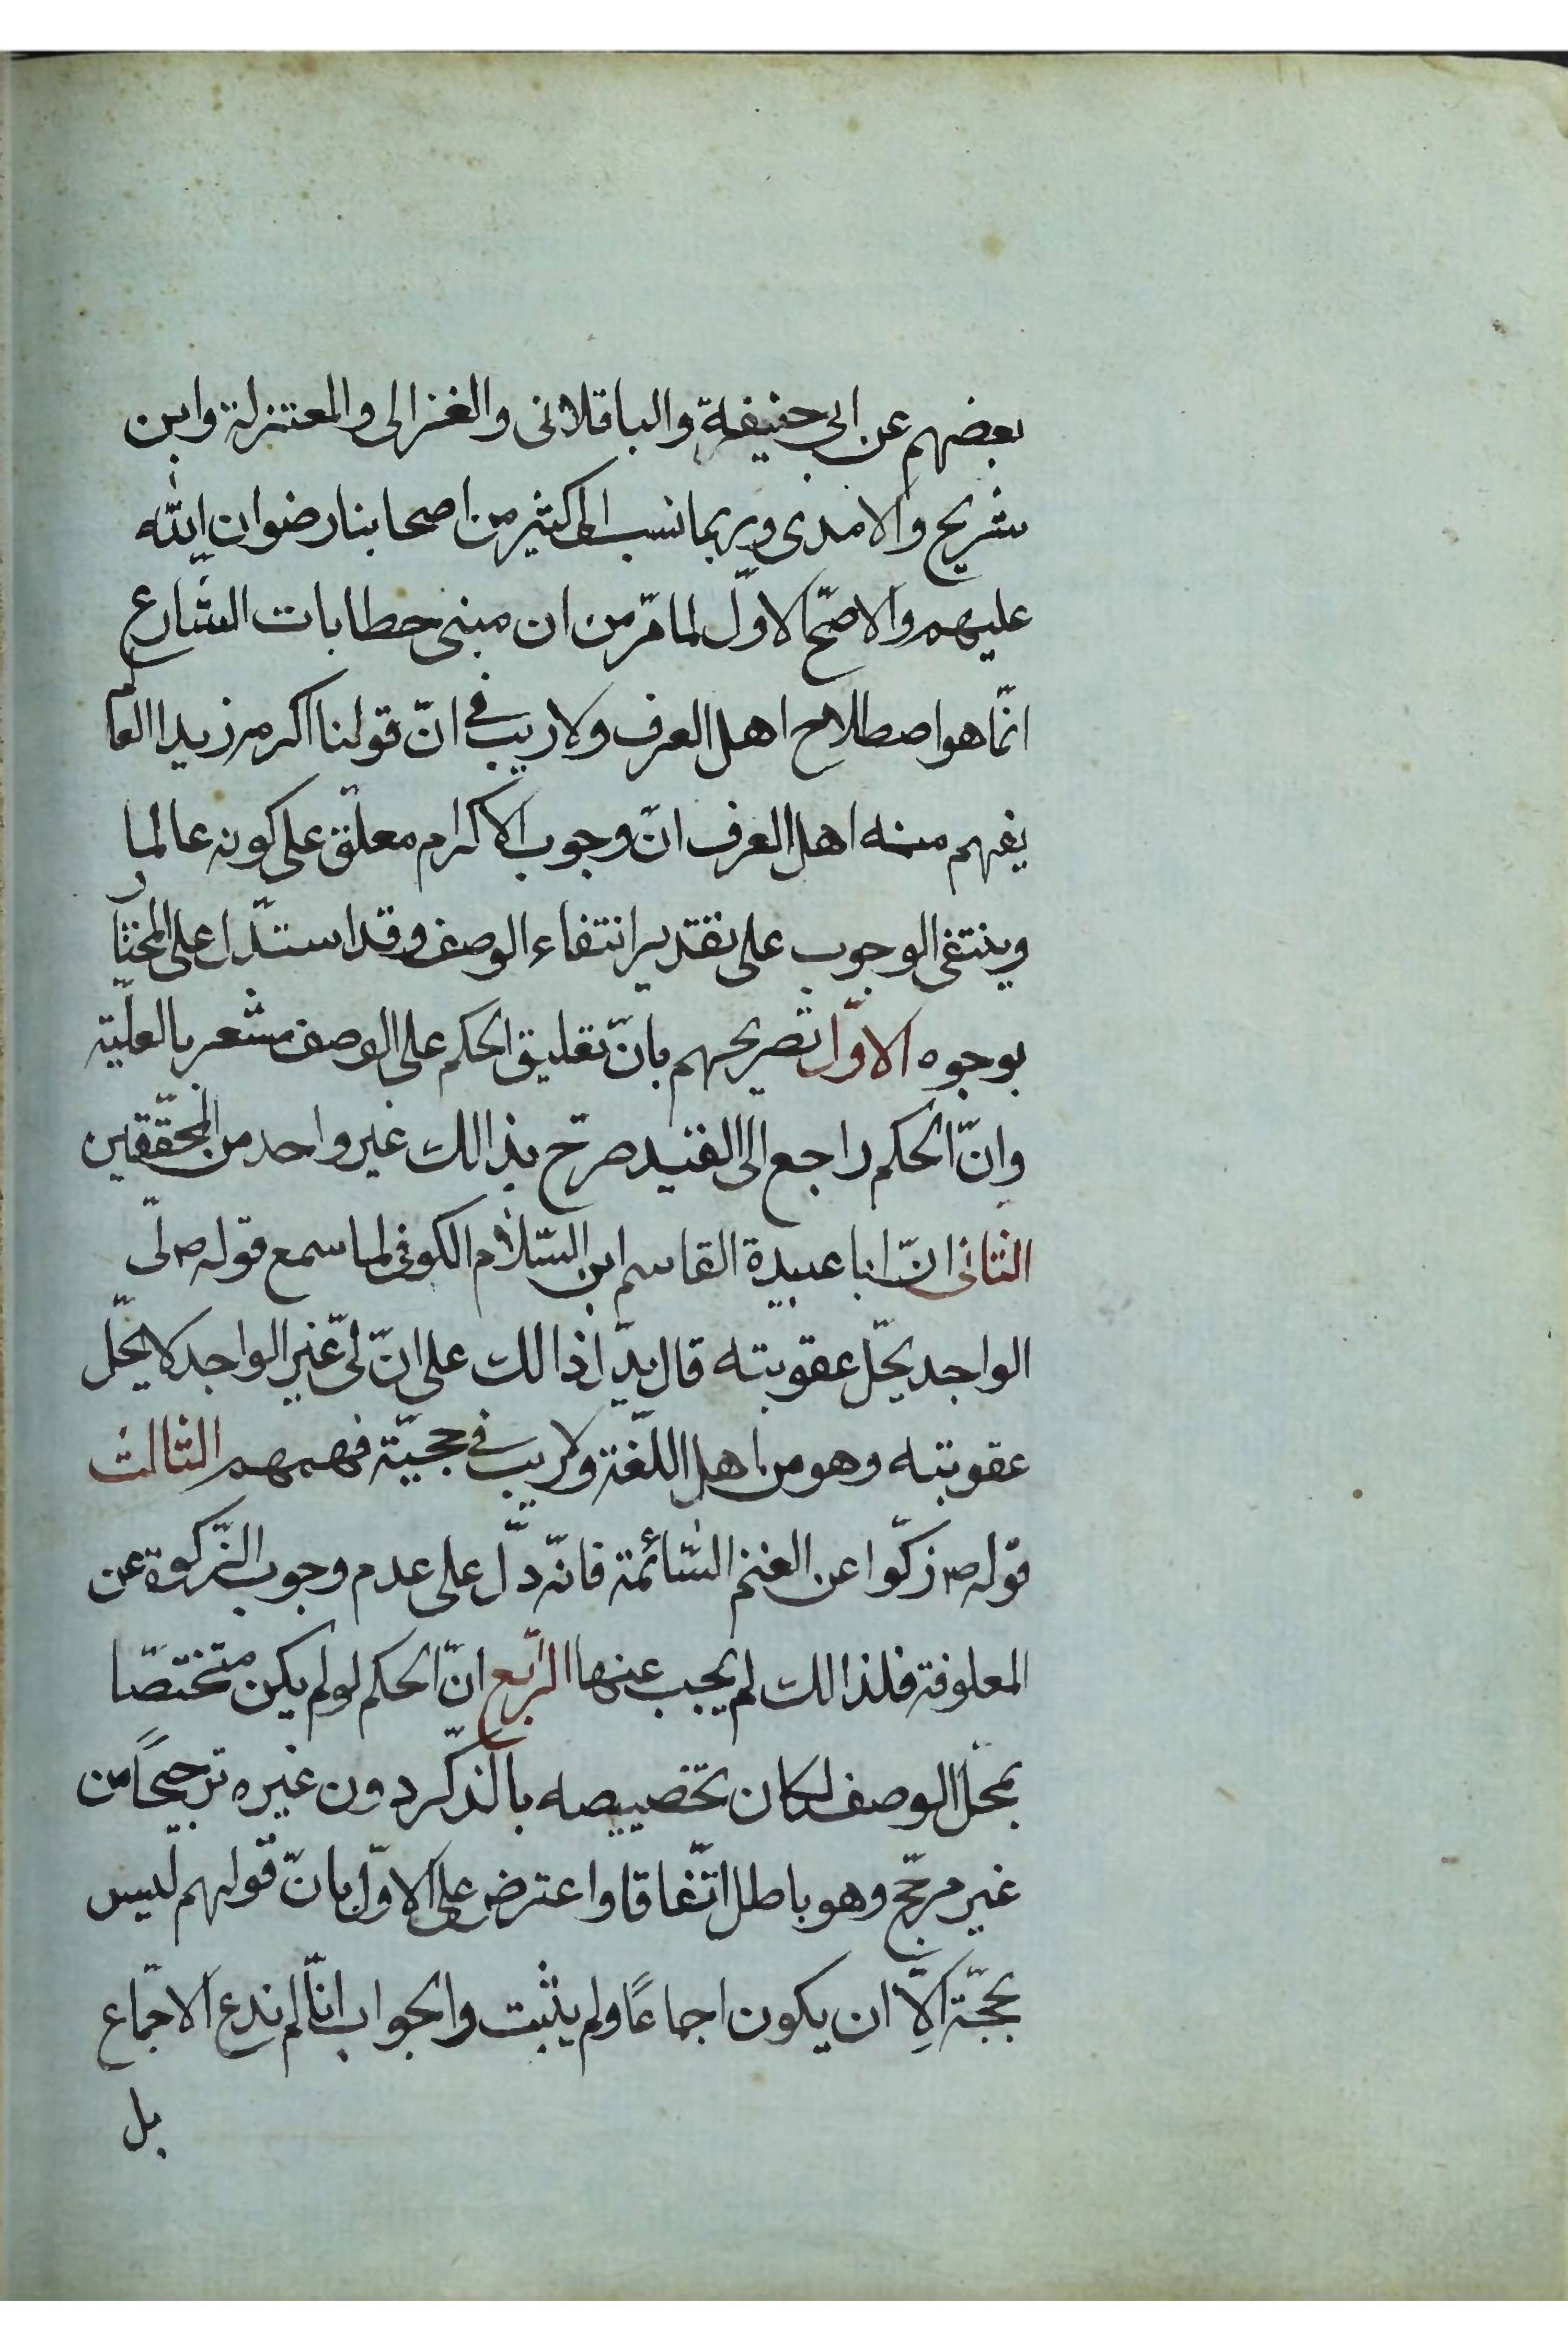 بعضهم عن ابى حنيفة والباقلانى والغزالى والمعتزلة وابن
شريح والامدى وربما نسب الى كثير من اصحابنا رضوان الله
عليهم والاصحّ الاوّل لما مرّ من ان مبنى خطابات الشارع
انّما هو اصطلاح اهل العرف ولا ريب فى انّ قولنا اكرم زيدا العالم
يفهم منه اهل العرف انّ وجوب الاكرام معلّق على كونه عالما
وينتفى الوجوب على تقدير انتفاء الوصف وقد استدّل على المختار
بوجوه الاوّل تصريحهم بانّ تعليق الحكم على الوصف مشعر بالعلّية
وانّ الحكم راجع الى القيد صرّح بذالك غير واحد من المحقّقين
الثانى انّ ابا عبيدة القاسم ابن السّلام الكوفى لما سمع قوله ص لىّ
الواجد يحّل عقوبته قال يدّل ذالك على انّ لىّ غير الواجد لا يحّل
عقوبته وهو من اهل اللّغة ولا ريب فى حجيّة فهمهم الثالث
قوله ص زكّوا عن الغنم السّائمة فانّه دّل على عدم وجوب الزّكوة عن
المعلوفة فلذالك لم يجب عنها الرّابع انّ الحكم لو لم يكن مختصّا
بمحّل الوصف لكان تخصيصه بالذّكر دون غيره ترجيحًا من
غير مرجّح وهو باطل اتّفاقا واعترض على الاوّل بانّ قولهم ليس
بحجّة الّا ان يكون اجماعًا ولم يثبت والجواب انّا لم ندع الاجمّاع
بل